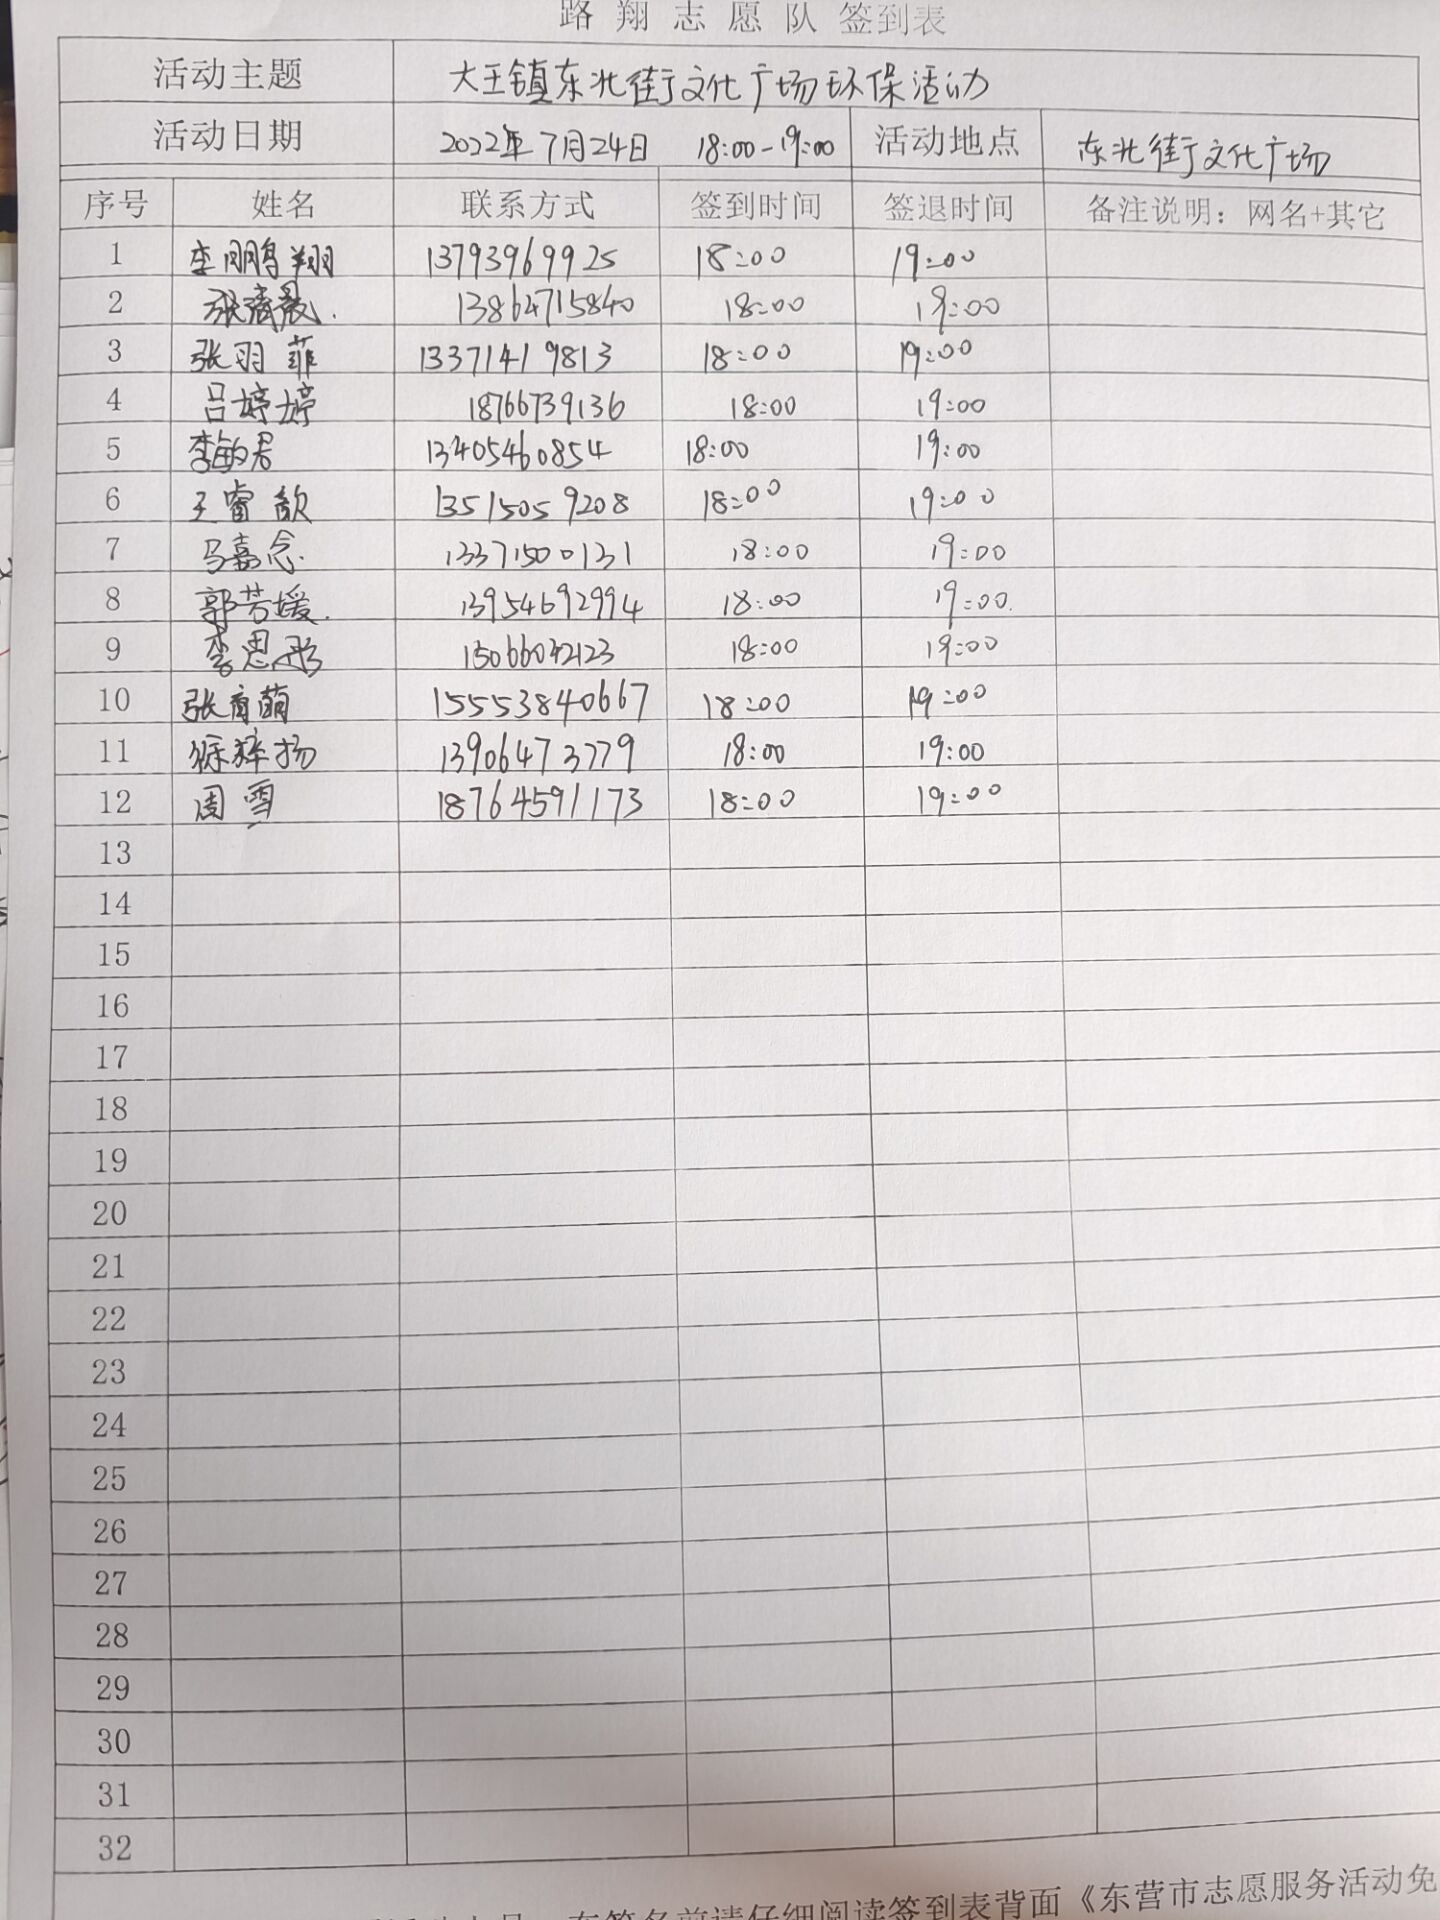 路翔志愿队签到表
活动主题 大王镇东北街文化广场环保活动
活动日期 2022年7月24日 18:00-19:00 活动地点 东北街文化广场
序号 姓名 联系方式 签到时间 签退时间 备注说明：网名+其它
1 李鹏翔 13793969925 18:00 19:00
2 张 13864715840 18:00 19:00
3 张羽菲 13371419813 18:00 19:00
4 吕婷婷 18766739136 18:00 19:00
5 李敏君 13405460854 18:00 19:00
6 王睿歆 13515059208 18:00 19:00
7 马嘉念 13371500131 18:00 19:00
8 郭芳媛 13954692994 18:00 19:00
9 李思彤 18:00 19:00
10 张育萌 15553840667 18:00 19:00
11 徐梓扬 13906473779 18:00 19:00
12 周雪 18764591173 18:00 19:00
13
14
15
16
17
18
19
20
21
22
23
24
25
26
27
28
29
30
31
32
在签名前请仔细阅读签到表背面《东营市志愿服务活动免